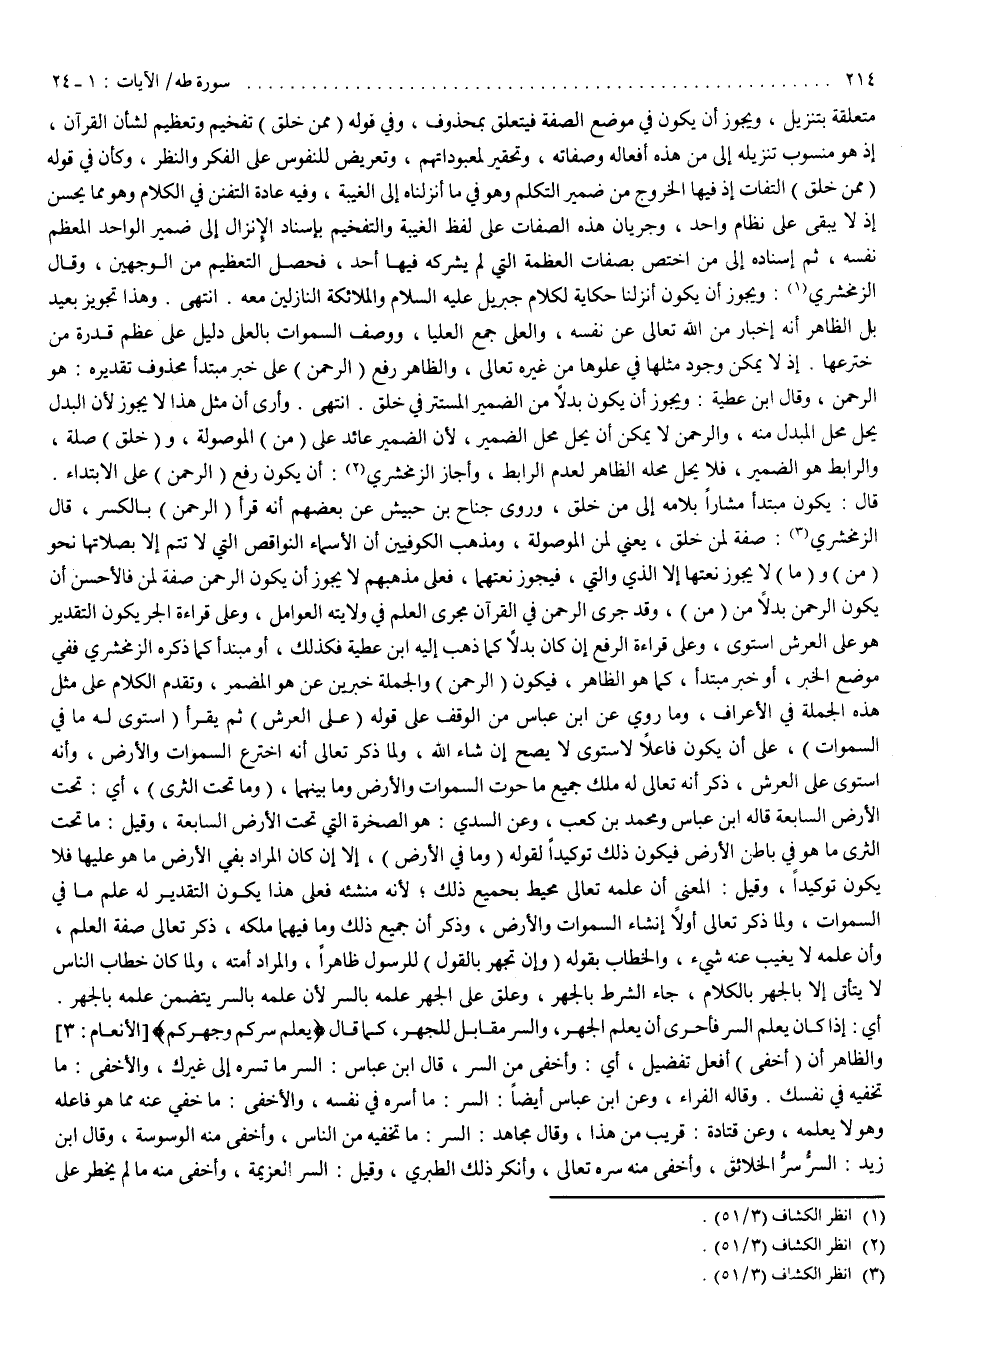 ٢١٤ ............................................ سورة طه/ الآيات : ١ - ٢٤
متعلقة بتنزيل ، ويجوز أن يكون في موضع الصفة فيتعلق بمحذوف ، وفي قوله ( ممن خلق ) تفخيم وتعظيم لشأن القرآن ،
إذ هو منسوب تنزيله إلى من هذه أفعاله وصفاته ، وتحقير لمعبوداتهم ، وتعريض للنفوس على الفكر والنظر ، وكأن في قوله
( ممن خلق ) التفات إذ فيها الخروج من ضمير التكلم وهو في ما أنزلناه إلى الغيبة ، وفيه عادة التفنن في الكلام وهو مما يحسن
إذ لا يبقى على نظام واحد ، وجريان هذه الصفات على لفظ الغيبة والتفخيم بإسناد الإنزال إلى ضمير الواحد المعظم
نفسه ، ثم إسناده إلى من اختص بصفات العظمة التي لم يشركه فيها أحد ، فحصل التعظيم من الوجهين ، وقال
الزمخشري(١) : ويجوز أن يكون أنزلنا حكاية لكلام جبريل عليه السلام والملائكة النازلين معه . انتهى . وهذا تجويز بعيد
بل الظاهر أنه إخبار من الله تعالى عن نفسه ، والعلى جمع العليا ، ووصف السموات بالعلى دليل على عظم قدرة من
خترعها . إذ لا يمكن وجود مثلها في علوها من غيره تعالى ، والظاهر رفع ( الرحمن ) على خبر مبتدأ محذوف تقديره : هو
الرحمن ، وقال ابن عطية : ويجوز أن يكون بدلاً من الضمير المستتر في خلق . انتهى . وأرى أن مثل هذا لا يجوز لأن البدل
يحل محل المبدل منه ، والرحمن لا يمكن أن يحل محل الضمير ، لأن الضمير عائد على ( من ) الموصولة ، و ( خلق ) صلة ،
والرابط هو الضمير ، فلا يحل محله الظاهر لعدم الرابط ، وأجاز الزمخشري(٢) : أن يكون رفع ( الرحمن ) على الابتداء .
قال : يكون مبتدأ مشاراً بلامه إلى من خلق ، وروى جناح بن حبيش عن بعضهم أنه قرأ ( الرحمن ) بالكسر ، قال
الزمخشري(٣) : صفة لمن خلق ، يعني لمن الموصولة ، ومذهب الكوفيين أن الأسماء النواقص التي لا تتم إلا بصلاتها نحو
( من ) و ( ما ) لا يجوز نعتها إلا الذي والتي ، فيجوز نعتهما ، فعلى مذهبهم لا يجوز أن يكون الرحمن صفة لمن فالأحسن أن
يكون الرحمن بدلاً من ( من ) ، وقد جرى الرحمن في القرآن مجرى العلم في ولايته العوامل ، وعلى قراءة الجر يكون التقدير
هو على العرش استوى ، وعلى قراءة الرفع إن كان بدلاً كما ذهب إليه ابن عطية فكذلك ، أو مبتدأ كما ذكره الزمخشري ففي
موضع الخبر ، أو خبر مبتدأ ، كما هو الظاهر ، فيكون ( الرحمن ) والجملة خبرين عن هو المضمر ، وتقدم الكلام على مثل
هذه الجملة في الأعراف ، وما روي عن ابن عباس من الوقف على قوله ( على العرش ) ثم يقرأ ( استوى له ما في
السموات ) ، على أن يكون فاعلاً لاستوى لا يصح إن شاء الله ، ولما ذكر تعالى أنه اخترع السموات والأرض ، وأنه
استوى على العرش ، ذكر أنه تعالى له ملك جميع ما حوت السموات والأرض وما بينهما ، ( وما تحت الثرى ) ، أي : تحت
الأرض السابعة قاله ابن عباس ومحمد بن كعب ، وعن السدي : هو الصخرة التي تحت الأرض السابعة ، وقيل : ما تحت
الثرى ما هو في باطن الأرض فيكون ذلك توكيداً لقوله ( وما في الأرض ) ، إلا إن كان المراد بفي الأرض ما هو عليها فلا
يكون توكيداً ، وقيل : المعنى أن علمه تعالى محيط بجميع ذلك ؛ لأنه منشئه فعلى هذا يكون التقدير له علم ما في
السموات ، ولما ذكر تعالى أولاً إنشاء السموات والأرض ، وذكر أن جميع ذلك وما فيهما ملكه ، ذكر تعالى صفة العلم ،
وأن علمه لا يغيب عنه شيء ، والخطاب بقوله ( وإن تجهر بالقول ) للرسول ظاهراً ، والمراد أمته ، ولما كان خطاب الناس
لا يتأتى إلا بالجهر بالكلام ، جاء الشرط بالجهر ، وعلق على الجهر علمه بالسر لأن علمه بالسر يتضمن علمه بالجهر .
أي : إذا كان يعلم السر فأحرى أن يعلم الجهر، والسر مقابل للجهر، كما قال ﴿يعلم سركم وجهركم﴾ [الأنعام : ٣]
والظاهر أن ( أخفى ) أفعل تفضيل ، أي : وأخفى من السر ، قال ابن عباس : السر ما تسره إلى غيرك ، والأخفى : ما
تخفيه في نفسك . وقاله الفراء ، وعن ابن عباس أيضاً : السر : ما أسره في نفسه ، والأخفى : ما خفي عنه مما هو فاعله
وهو لا يعلمه ، وعن قتادة : قريب من هذا ، وقال مجاهد : السر : ما تخفيه من الناس ، وأخفى منه الوسوسة ، وقال ابن
زيد : السرُّ سرُّ الخلائق ، وأخفى منه سره تعالى ، وأنكر ذلك الطبري ، وقيل : السر العزيمة ، وأخفى منه ما لم يخطر على
(١) انظر الكشاف (٥١/٣) .
(٢) انظر الكشاف (٥١/٣) .
(٣) انظر الكشاف (٥١/٣) .